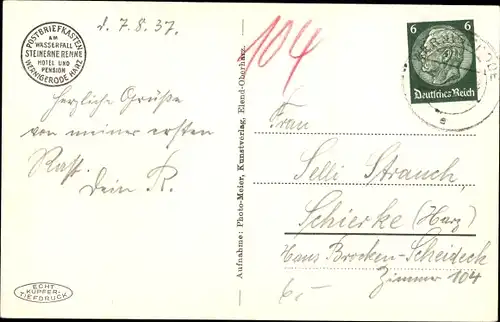 d. 7.8.37.
POSTBRIEFKASTEN
AM
WASSERFALL
STEINERNE RENNE
HOTEL UND
PENSION
WERNIGERODE HARZ
Herzliche Grüße
von meiner ersten
Rast.
Dein R.
ECHT
KUPFER-
TIEFDRUCK
Aufnahme: Photo-Meier, Kunstverlag, Elend-Oberharz.
104
6 6
Deutsches Reich
a
Frau
Selli Strauch,
Schierke (Harz)
Haus Brocken-Scheideck
Zimmer 104
6,-